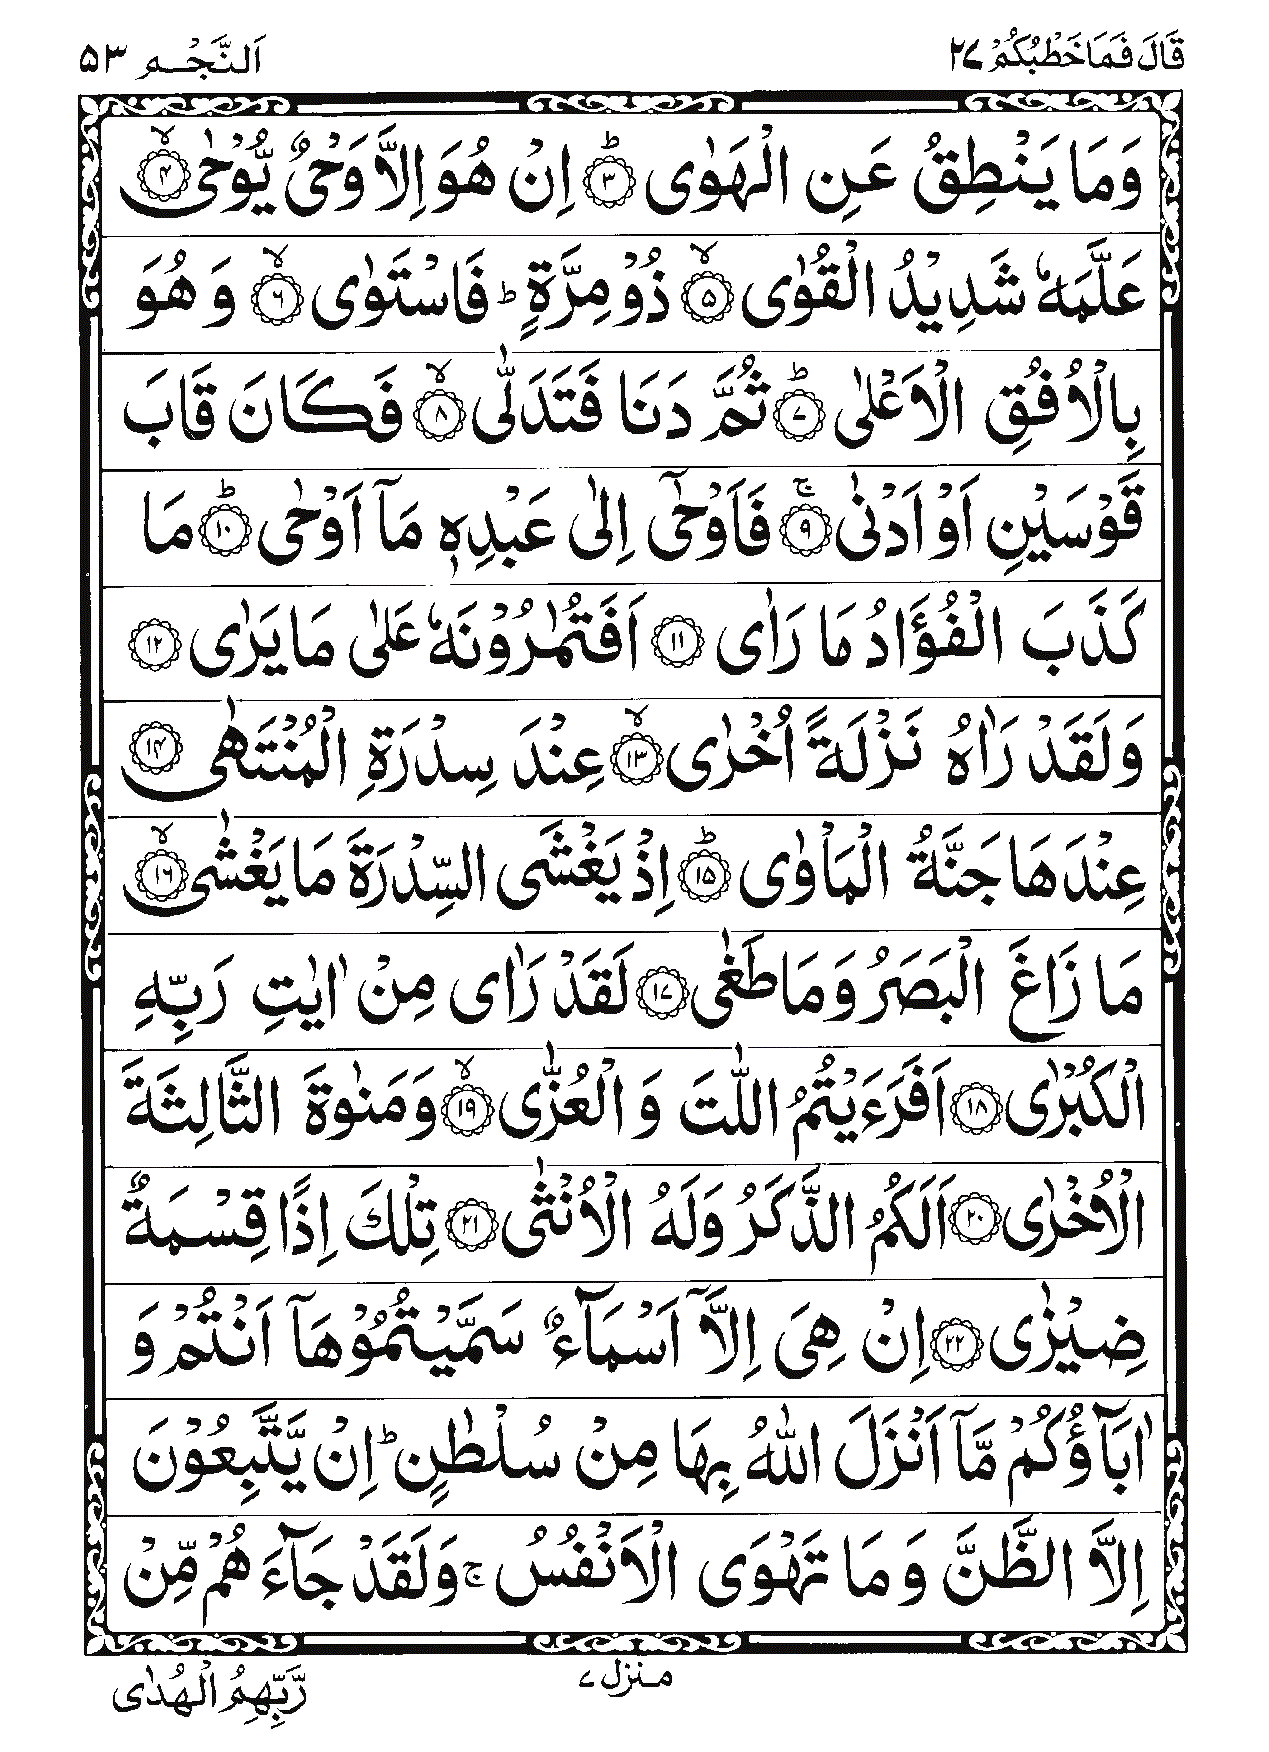 قَالَ فَمَا خَطْبُكُمْ ۲۷ اَلنَّجْم ۵۳
وَمَا يَنْطِقُ عَنِ الْهَوٰىؕ‏﴿۳﴾ اِنْ هُوَ اِلَّا وَحْىٌ يُّوْحٰىۙ‏﴿۴﴾
عَلَّمَهٗ شَدِيْدُ الْقُوٰىۙ‏﴿۵﴾ ذُوْ مِرَّةٍؕ فَاسْتَوٰىۙ‏﴿۶﴾ وَ هُوَ
بِالْاُفُقِ الْاَعْلٰىؕ‏﴿۷﴾ ثُمَّ دَنَا فَتَدَلّٰىۙ‏﴿۸﴾ فَكَانَ قَابَ
قَوْسَيْنِ اَوْ اَدْنٰىۚ‏﴿۹﴾ فَاَوْحٰۤى اِلٰى عَبْدِهٖ مَاۤ اَوْحٰىؕ‏﴿۱۰﴾ مَا
كَذَبَ الْفُؤَادُ مَا رَاٰى‏﴿۱۱﴾ اَفَتُمٰرُوْنَهٗ عَلٰى مَا يَرٰى‏﴿۱۲﴾
وَلَقَدْ رَاٰهُ نَزْلَةً اُخْرٰىۙ‏﴿۱۳﴾ عِنْدَ سِدْرَةِ الْمُنْتَهٰى‏﴿۱۴﴾
عِنْدَهَا جَنَّةُ الْمَاْوٰىؕ‏﴿۱۵﴾ اِذْ يَغْشَى السِّدْرَةَ مَا يَغْشٰىۙ‏﴿۱۶﴾
مَا زَاغَ الْبَصَرُ وَمَا طَغٰى‏﴿۱۷﴾ لَقَدْ رَاٰى مِنْ اٰيٰتِ رَبِّهِ
الْكُبْرٰى‏﴿۱۸﴾ اَفَرَءَيْتُمُ اللّٰتَ وَ الْعُزّٰىۙ‏﴿۱۹﴾ وَمَنٰوةَ الثَّالِثَةَ
الْاُخْرٰى‏﴿۲۰﴾ اَلَكُمُ الذَّكَرُ وَلَهُ الْاُنْثٰى‏﴿۲۱﴾ تِلْكَ اِذًا قِسْمَةٌ
ضِيْزٰى‏﴿۲۲﴾ اِنْ هِىَ اِلَّاۤ اَسْمَآءٌ سَمَّيْتُمُوْهَاۤ اَنْتُمْ وَ
اٰبَآؤُكُمْ مَّاۤ اَنْزَلَ اللّٰهُ بِهَا مِنْ سُلْطٰنٍؕ اِنْ يَّتَّبِعُوْنَ
اِلَّا الظَّنَّ وَ مَا تَهْوَى الْاَنْفُسُۚ وَلَقَدْ جَآءَهُمْ مِّنْ
منزل ۷
رَّبِّهِمُ الْهُدٰى